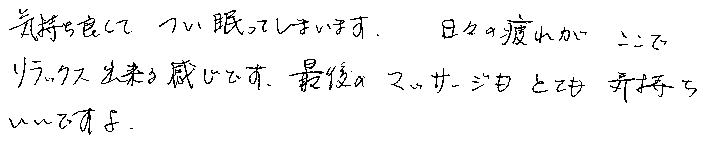 気持ち良くて つい眠ってしまいます. 日々の疲れが ここで
リラックス出来る感じです. 最後の マッサージも とても 気持ち
いいですよ.